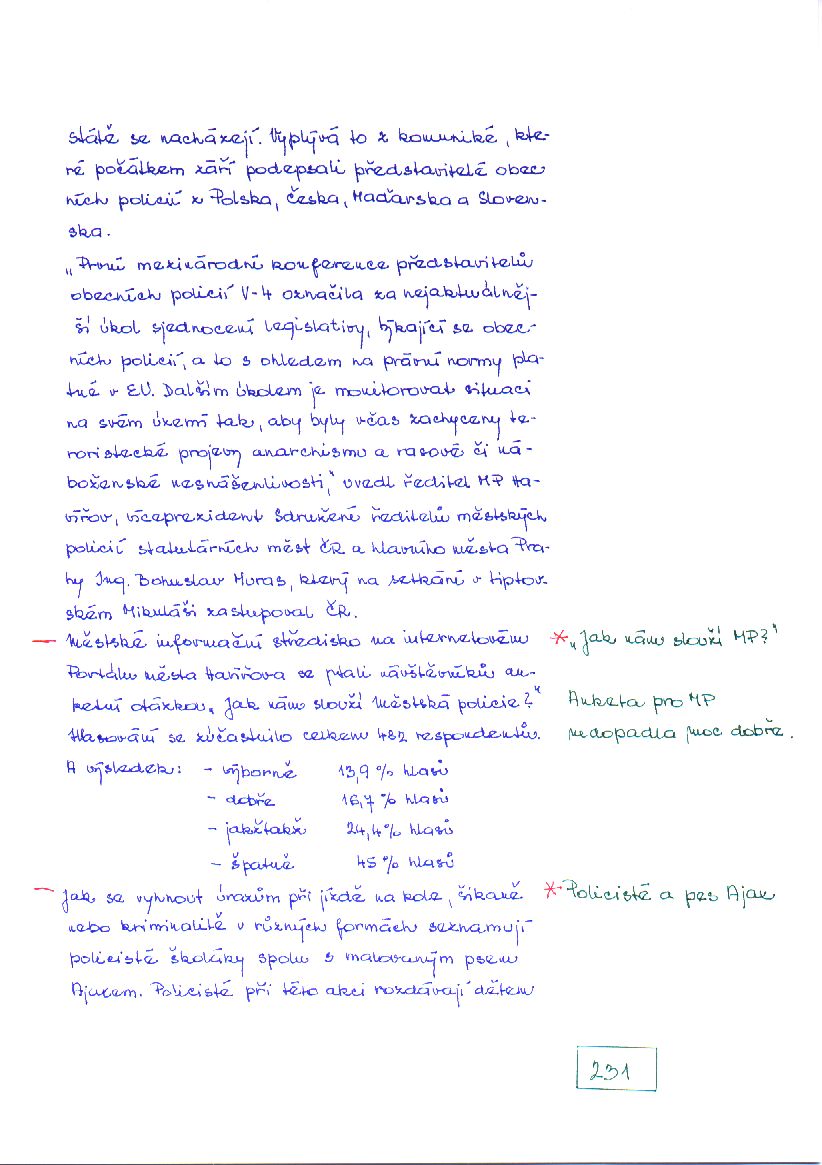 státě se nacházejí. Vyplývá to z komuniké, kte-
ré počátkem září podepsali představitelé obec
ních policií z Polska, Česka, Maďarska a Sloven-
ska.
„První mezinárodní konference představitelů
obecních policií V-4 označila za nejaktuálněj-
ší úkol sjednocení legislativy, týkající se obec-
ních policií, a to s ohledem na právní normy pla-
tné v EU. Dalším úkolem je monitorovat situaci
na svém území tak, aby byly včas zachyceny te-
roristecké projevy anarchismu a rasové či ná-
boženské nesnášenlivosti," uvedl ředitel MP Ha-
vířov, víceprezident Sdružení ředitelů městských
policií statutárních měst ČR a hlavního města Pra-
hy Ing. Bohuslav Muras, který na setkání v Liptov-
ském Mikuláši zastupoval ČR.
— Městské informační středisko na internetovém
Portálu města Havířova se ptali návštěvníků an-
ketní otázkou „Jak nám slouží Městská policie?"
Hlasování se zúčastnilo celkem 482 respondentů.
A výsledek: - výborně 13,9 % hlasů
- dobře 16,7 % hlasů
- jakžtakž 24,4 % hlasů
- špatně 45 % hlasů
— Jak se vyhnout úrazům při jízdě na kole, šikaně
nebo kriminalitě v různých formách seznamují
policisté školáky spolu s malovaným psem
Ajaxem. Policisté při této akci rozdávají dětem
* „Jak nám slouží MP?"
Anketa pro MP
nedopadla moc dobře.
* Policisté a pes Ajax
231